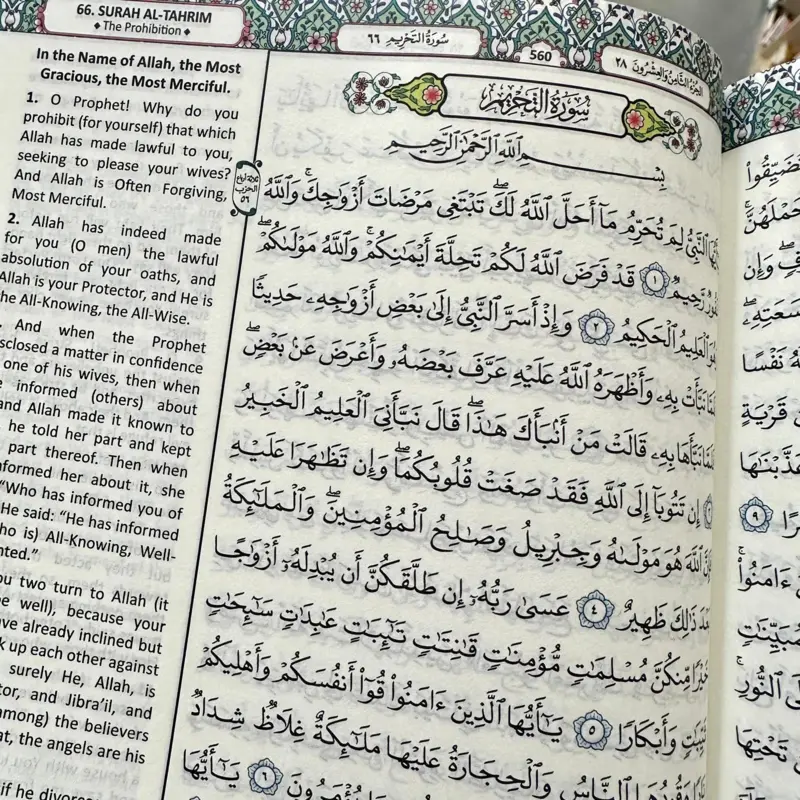 66. SURAH AL-TAHRIM
The Prohibition
سُورَةُ التَّحْرِيمِ ٦٦
560
الجُزْءُ الثَّامِنُ وَالْعِشْرُونَ ٢٨
In the Name of Allah, the Most
Gracious, the Most Merciful.
1. O Prophet! Why do you
prohibit (for yourself) that which
Allah has made lawful to you,
seeking to please your wives?
And Allah is Often Forgiving,
Most Merciful.
2. Allah has indeed made
for you (O men) the lawful
absolution of your oaths, and
Allah is your Protector, and He is
the All-Knowing, the All-Wise.
And when the Prophet
disclosed a matter in confidence
one of his wives, then when
informed (others) about
and Allah made it known to
he told her part and kept
part thereof. Then when
informed her about it, she
"Who has informed you of
He said: "He has informed
who is) All-Knowing, Well-
you two turn to Allah (it
well), because your
have already inclined but
up each other against
surely He, Allah, is
and Jibra'il, and
among) the believers
the angels are his
if he divorce
ثلاثة أرباع
الحزب
٥٦
سُورَةُ التَّحْرِيمِ
بِسْمِ ٱللَّهِ ٱلرَّحْمَٰنِ ٱلرَّحِيمِ
ٱلنَّبِيُّ لِمَ تُحَرِّمُ مَآ أَحَلَّ ٱللَّهُ لَكَ ۖ تَبْتَغِى مَرْضَاتَ أَزْوَٰجِكَ ۚ وَٱللَّهُ
رَّحِيمٌ ١ قَدْ فَرَضَ ٱللَّهُ لَكُمْ تَحِلَّةَ أَيْمَٰنِكُمْ ۚ وَٱللَّهُ مَوْلَىٰكُمْ ۖ
ٱلْعَلِيمُ ٱلْحَكِيمُ ٢ وَإِذْ أَسَرَّ ٱلنَّبِىُّ إِلَىٰ بَعْضِ أَزْوَٰجِهِۦ حَدِيثًا
نَبَّأَتْ بِهِۦ وَأَظْهَرَهُ ٱللَّهُ عَلَيْهِ عَرَّفَ بَعْضَهُۥ وَأَعْرَضَ عَنۢ بَعْضٍ ۖ
نَبَّأَهَا بِهِۦ قَالَتْ مَنْ أَنۢبَأَكَ هَٰذَا ۖ قَالَ نَبَّأَنِىَ ٱلْعَلِيمُ ٱلْخَبِيرُ
إِن تَتُوبَآ إِلَى ٱللَّهِ فَقَدْ صَغَتْ قُلُوبُكُمَا ۖ وَإِن تَظَٰهَرَا عَلَيْهِ
ٱللَّهَ هُوَ مَوْلَىٰهُ وَجِبْرِيلُ وَصَٰلِحُ ٱلْمُؤْمِنِينَ ۖ وَٱلْمَلَٰٓئِكَةُ
ذَٰلِكَ ظَهِيرٌ ٤ عَسَىٰ رَبُّهُۥٓ إِن طَلَّقَكُنَّ أَن يُبْدِلَهُۥٓ أَزْوَٰجًا
خَيْرًا مِّنكُنَّ مُسْلِمَٰتٍ مُّؤْمِنَٰتٍ قَٰنِتَٰتٍ تَٰٓئِبَٰتٍ عَٰبِدَٰتٍ سَٰٓئِحَٰتٍ
وَأَبْكَارًا ٥ يَٰٓأَيُّهَا ٱلَّذِينَ ءَامَنُوا۟ قُوٓا۟ أَنفُسَكُمْ وَأَهْلِيكُمْ
وَقُودُهَا ٱلنَّاسُ وَٱلْحِجَارَةُ عَلَيْهَا مَلَٰٓئِكَةٌ غِلَاظٌ شِدَادٌ
٦ يَٰٓأَيُّهَا
وَإِن
نَفْسًا
قَرْيَةٍ
٩
ءَامَنُوا۟
ٱلنُّورِ
تَحْتِهَا